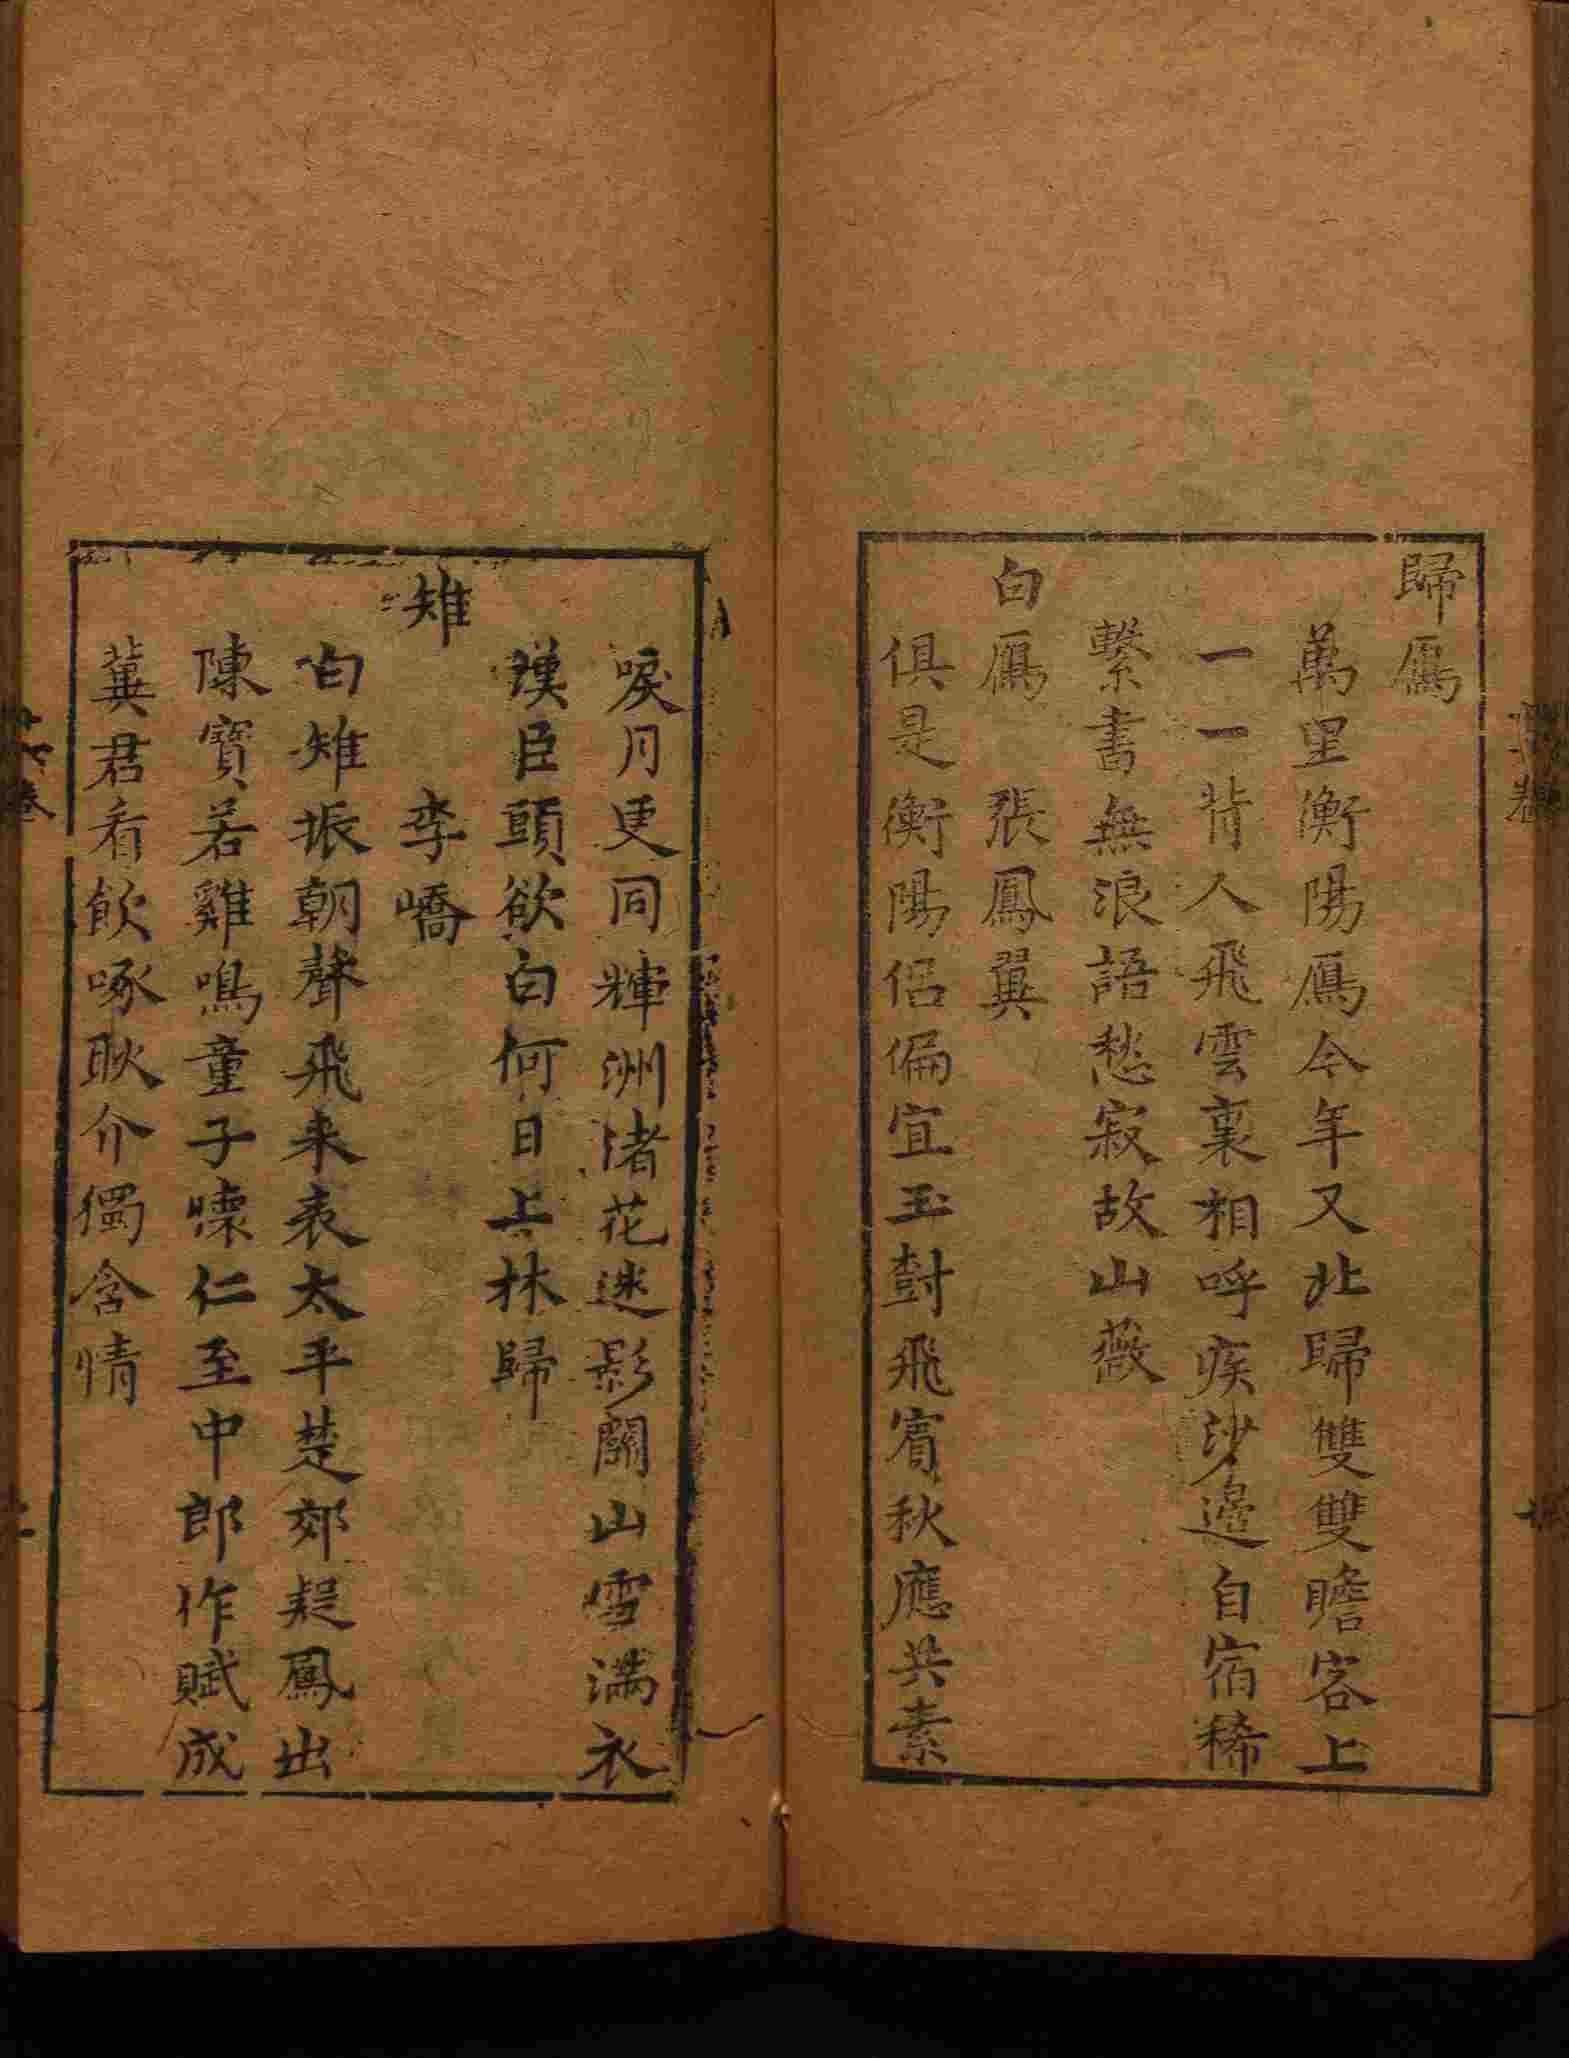 歸鴈
萬里衡陽鴈今年又北歸雙雙瞻客上
一一背人飛雲裏相呼疾沙邊自宿稀
繫書無浪語愁寂故山薇
白鴈　張鳳翼
俱是衡陽侶偏宜玉塞飛賓秋應共素
唳月更同輝洲渚花迷影關山雪滿衣
漢臣頭欲白何日上林歸
雉
李嶠
白雉振朝聲飛来表太平楚郊疑鳳出
陳寶若雞鳴童子懷仁至中郎作賦成
冀君看飲啄耿介獨含情